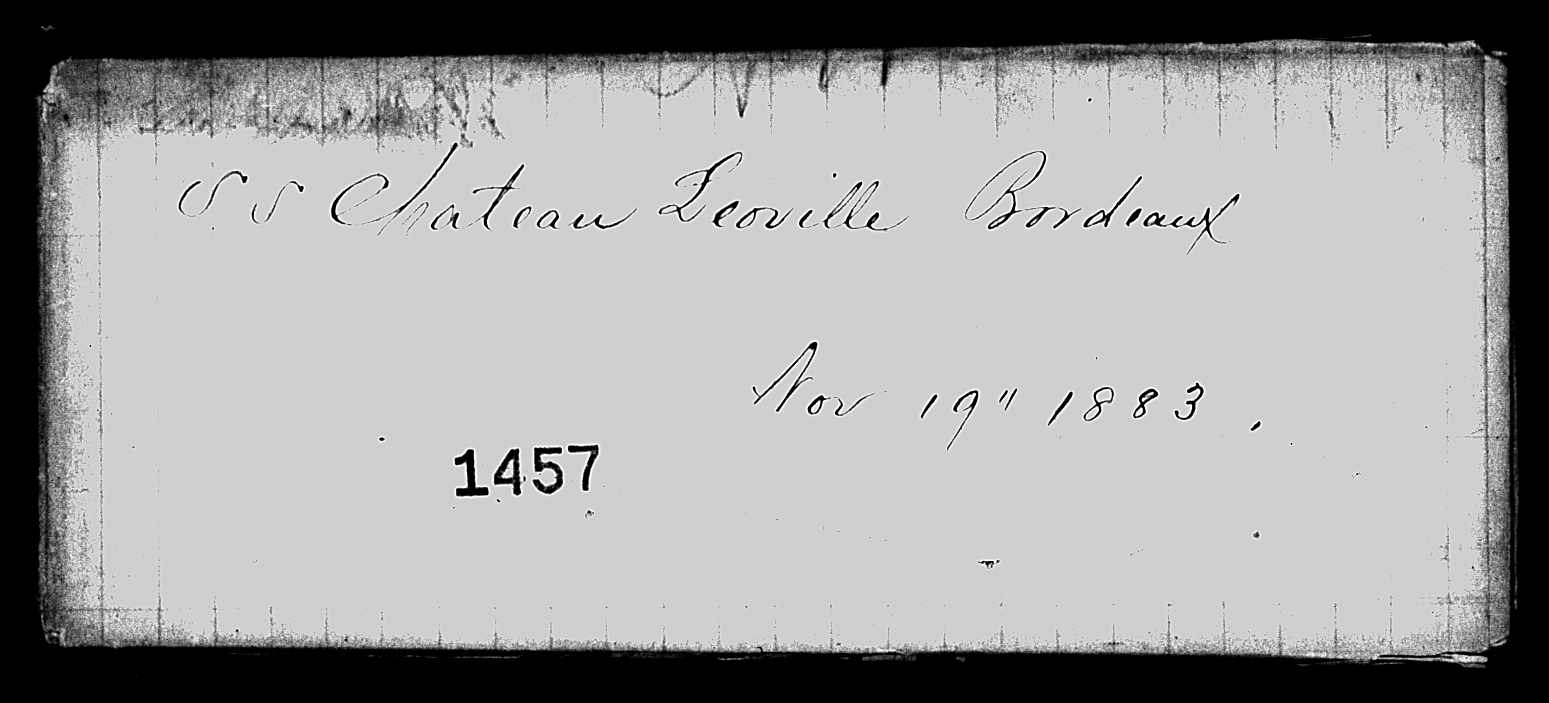 S S Chateau Leoville Bordeaux
Nov 19" 1883.
1457